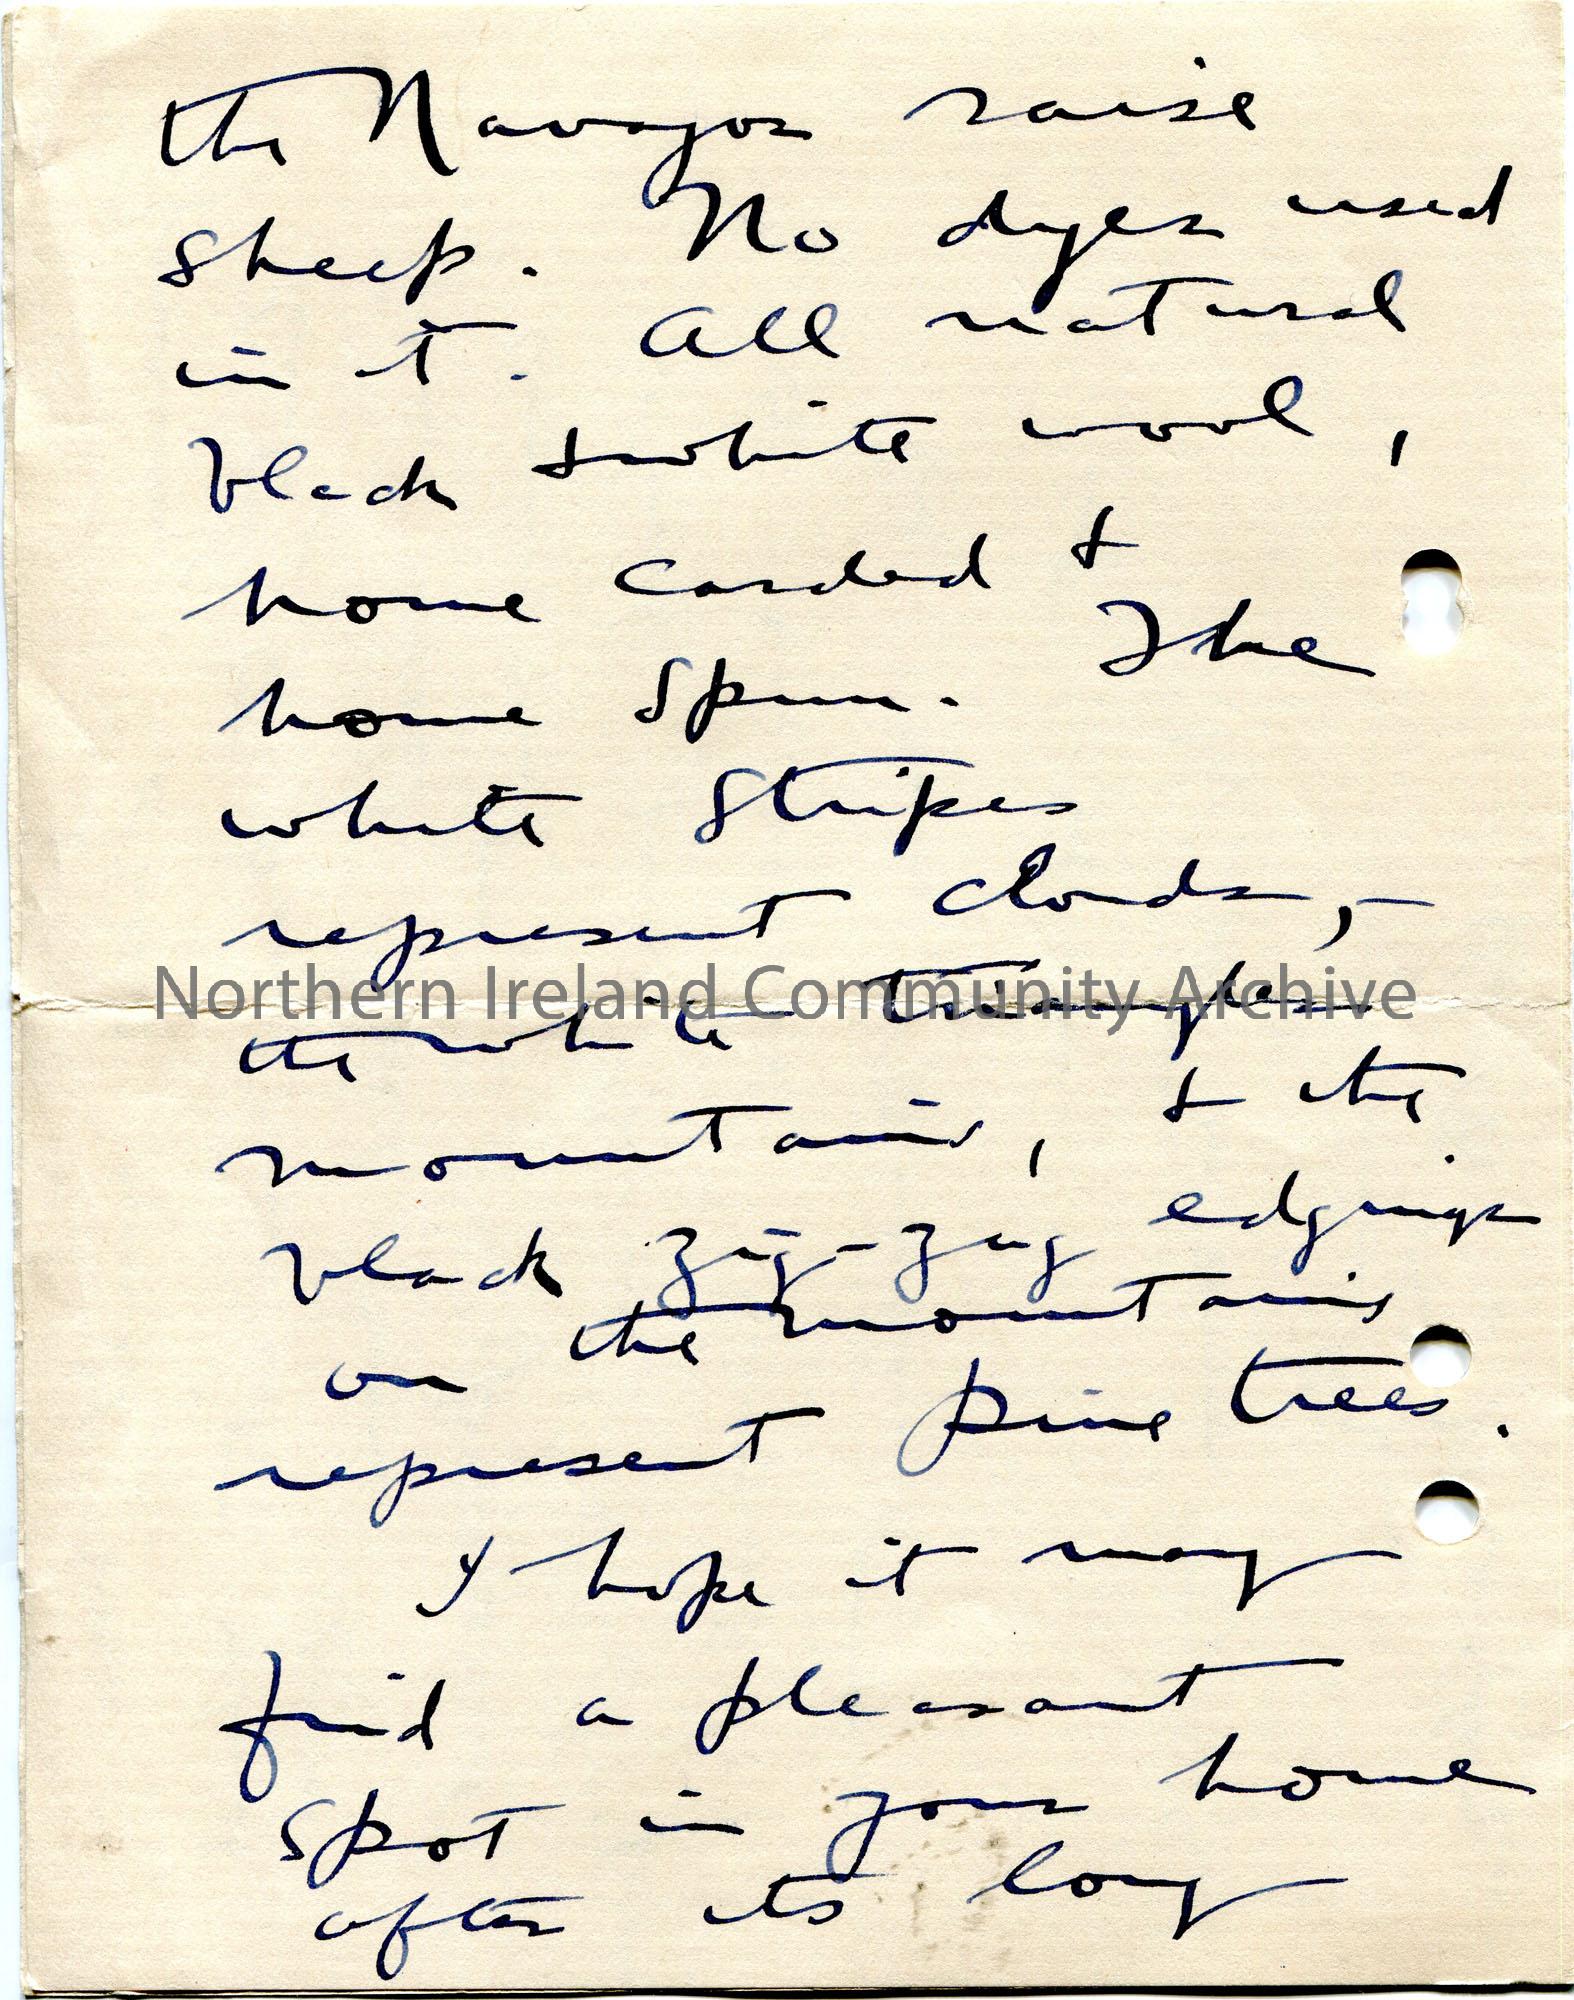 the Navajos raise
sheep. No dyes used
in it. All natural
black & white wool,
home carded &
home spun. The
white stripes
represent clouds,-
the white triangles
Northern Ireland Community Archive
mountains, & the
black zig-zag edgings
on the mountains
represent pine trees.
I hope it may
find a pleasant
spot in your home
after its long